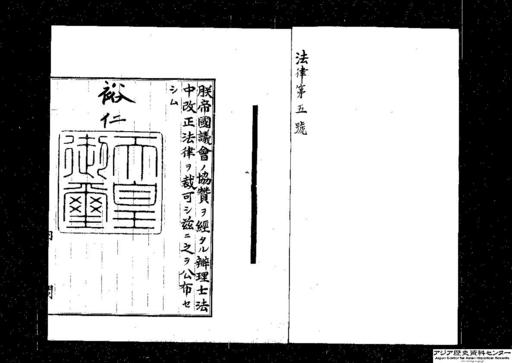 法律第五號
朕帝國議會ノ協贊ヲ經タル辦理士法
中改正法律ヲ裁可シ茲ニ之ヲ公布セ
シム
裕仁
天皇
御璽
内 閣
アジア歴史資料センター
Japan Center for Asian Historical Records